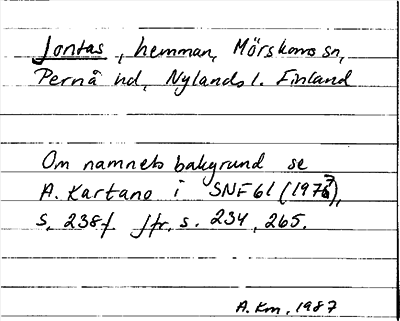 Jontas, hemman, Mörskoms sn,
Pernå hd, Nylands l. Finland
Om namnets bakgrund se
A. Kartano i SNF 61 (1973),
s. 238f. Jfr. s. 234, 265.
A. Km, 1987